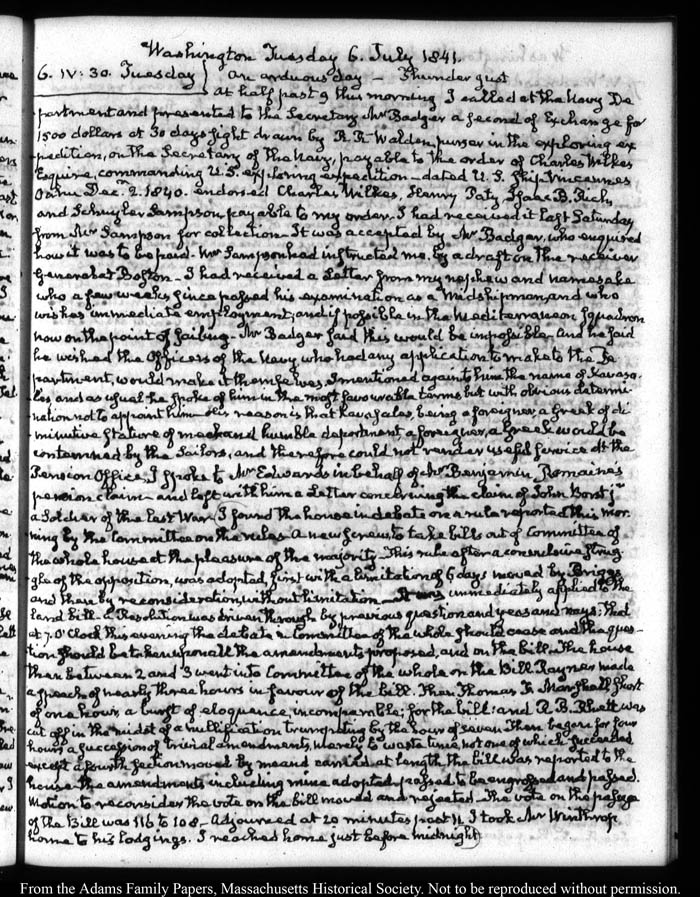 Washington Tuesday 6. July 1841.
6. IV: 30. Tuesday } An arduous day — Thunder gust
At half past 9 this morning I called at the Navy De
partment and presented to the Secretary Mr Badger a second of Exchange for
1500 dollars at 30 days sight drawn by R. R. Waldron, purser in the exploring ex
pedition, on the Secretary of the Navy, payable to the order of Charles Wilkes
Esquire, commanding U.S. exploring expedition — dated U.S. Ship Vincennes
Oahu Decr 2. 1840. endorsed Charles Wilkes, Henry Paty, Isaac B. Rich,
and Schuyler Sampson payable to my order. I had received it last Saturday
from Mr Sampson for collection — It was accepted by Mr Badger, who enquired
how it was to be paid. Mr Sampson had instructed me. by a draft on the receiver
General at Boston — I had received a Letter from my nephew and namesake
who a few weeks since passed his examination as a Midshipman, and who
wishes immediate employment, and if possible in the Mediterranean Squadron
now on the point of sailing — Mr Badger said this would be impossible and he said
he wished the Officers of the Navy who had any application to make to the De
partment, would make it themselves. I mentioned again to him the name of Kavasa-
les and as usual he spoke of him in the most favourable terms but with obvious determi-
nation not to appoint him — His reason is that Kavasales, being a foreigner, a Greek of di
minutive stature of meek and humble deportment, a foreigner, a Greek would be
contemned by the Sailors, and therefore could not render useful service At the
Pension Office, I spoke to Mr Edwards in behalf of Mr Benjamin Romaine's
pension claim — and left with him a Letter concerning the claim of John Borst jr
a Soldier of the last War — I found the house in debate on a rule reported this mor
ning by the Committee on the rules — A new screw to take bills out of Committee of
the whole house at the pleasure of the majority — This rule after a convulsive strug-
gle of the opposition, was adopted, first with a limitation of 6 days moved by Briggs
and then by reconsideration, without limitation — It was immediately applied to the
Land bill — A Resolution was driven through by previous question and yeas and nays; that
at 7. O'Clock this evening the debate in Committee of the whole should cease and the ques-
tion should be taken upon all the amendments proposed, and on the bill. The house
then between 2 and 3 went into Committee of the whole on the Bill Rayner made
a speech of nearly three hours in favour of the bill. Then Thomas F. Marshall short
of one hour, a burst of eloquence incomparable; for the bill: and R. B. Rhett was
cut off in the midst of a nullification trumpeting by the hour of seven. Then began for four
hours a succession of trivial amendments, merely to waste time, not one of which succeeded
except a fourth section moved by me and carried at length the bill was reported to the
house the amendments including mine adopted passed to be engrossed and passed.
Motion to reconsider the vote on the bill moved and rejected — The vote on the passage
of the Bill was 116 to 108 — Adjourned at 20 minutes past 11 I took Mr Winthrop
home to his lodgings. I reached home just before midnight
From the Adams Family Papers, Massachusetts Historical Society. Not to be reproduced without permission.